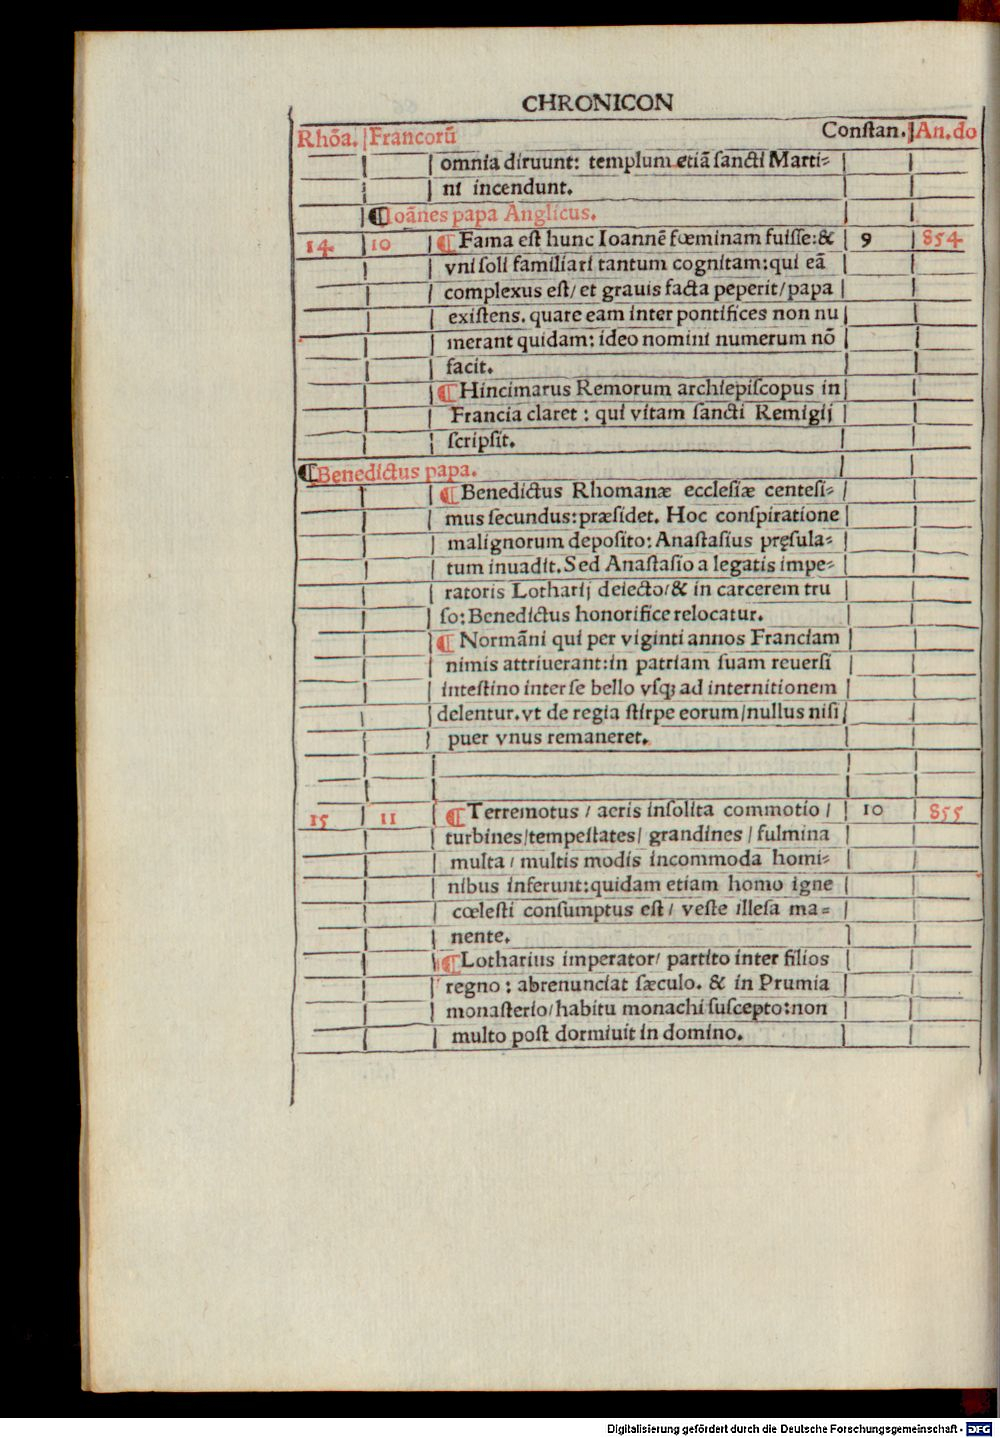 CHRONICON
Rhõa. Francorũ Conſtan. An. do
omnia diruunt: templum etiã ſancti Marti-
ni incendunt.
¶Ioãnes papa Anglicus.
14 10 ¶Fama eſt hunc Ioannẽ fœminam fuiſſe:& 9 854
vni ſoli familiari tantum cognitam:qui eã
complexus eſt/ et grauis facta peperit/papa
exiſtens. quare eam inter pontifices non nu
merant quidam: ideo nomini numerum nõ
facit.
¶Hincimarus Remorum archiepiſcopus in
Francia claret : qui vitam ſancti Remigij
ſcripſit.
¶Benedictus papa.
¶Benedictus Rhomanæ eccleſiæ centeſi-
mus ſecundus:præſidet. Hoc conſpiratione
malignorum depoſito: Anaſtaſius pręſula-
tum inuadit. Sed Anaſtaſio a legatis impe-
ratoris Lotharij deiecto/& in carcerem tru
ſo: Benedictus honorifice relocatur.
¶Normãni qui per viginti annos Franciam
nimis attriuerant:in patriam ſuam reuerſi
inteſtino inter ſe bello vſqꝫ ad internitionem
delentur. vt de regia ſtirpe eorum/nullus niſi
puer vnus remaneret.
15 11 ¶Terremotus / aeris inſolita commotio / 10 855
turbines/tempeſtates/ grandines / fulmina
multa / multis modis incommoda homi-
nibus inferunt:quidam etiam homo igne
cœleſti conſumptus eſt / veſte illeſa ma-
nente.
¶Lotharius imperator/ partito inter filios
regno : abrenunciat ſæculo. & in Prumia
monaſterio/habitu monachi ſuſcepto:non
multo poſt dormiuit in domino.
Digitalisierung gefördert durch die Deutsche Forschungsgemeinschaft - DFG